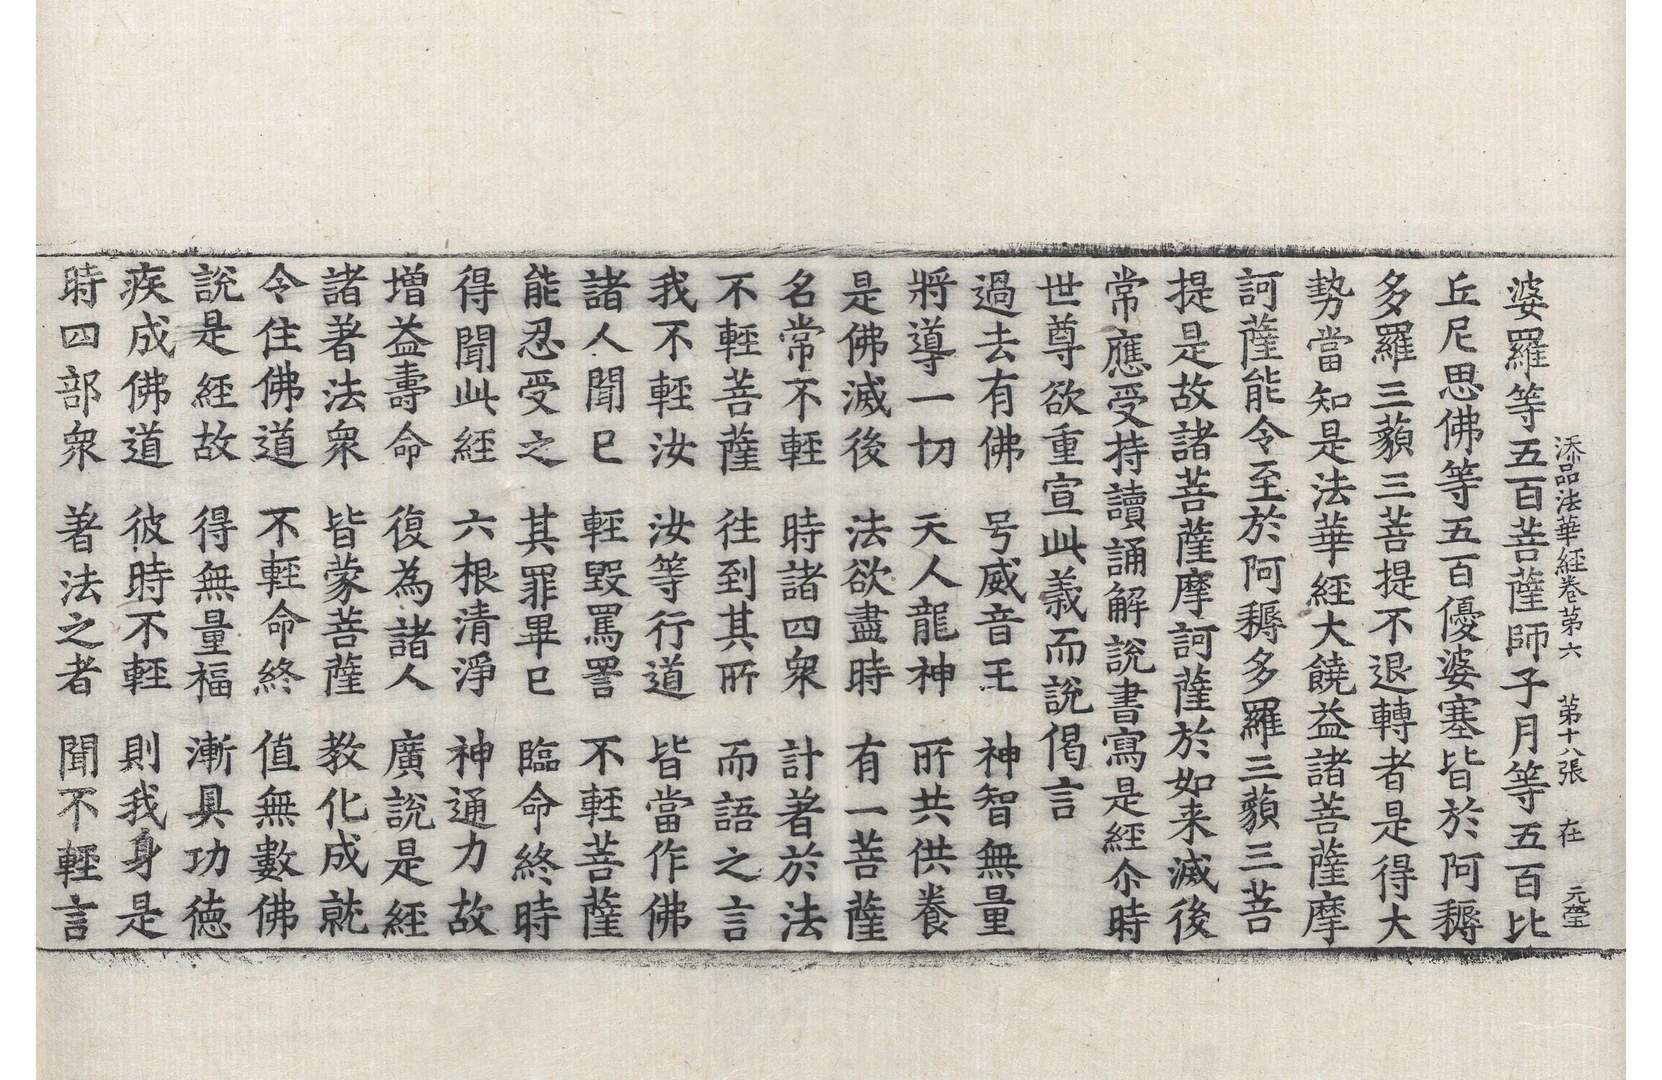 添品法華經卷第六 第十八張 在 元瑩
婆羅等五百菩薩師子月等五百比
丘尼思佛等五百優婆塞皆於阿耨
多羅三藐三菩提不退轉者是得大
勢當知是法華經大饒益諸菩薩摩
訶薩能令至於阿耨多羅三藐三菩
提是故諸菩薩摩訶薩於如来滅後
常應受持讀誦解說書寫是經尒時
世尊欲重宣此義而說偈言
過去有佛 号威音王 神智無量
將導一切 天人龍神 所共供養
是佛滅後 法欲盡時 有一菩薩
名常不輕 時諸四衆 計著於法
不輕菩薩 往到其所 而語之言
我不輕汝 汝等行道 皆當作佛
諸人聞已 輕毀罵詈 不輕菩薩
能忍受之 其罪畢已 臨命終時
得聞此經 六根清淨 神通力故
增益壽命 復為諸人 廣說是經
諸著法衆 皆蒙菩薩 教化成就
令住佛道 不輕命終 值無數佛
說是經故 得無量福 漸具功德
疾成佛道 彼時不輕 則我身是
時四部衆 著法之者 聞不輕言